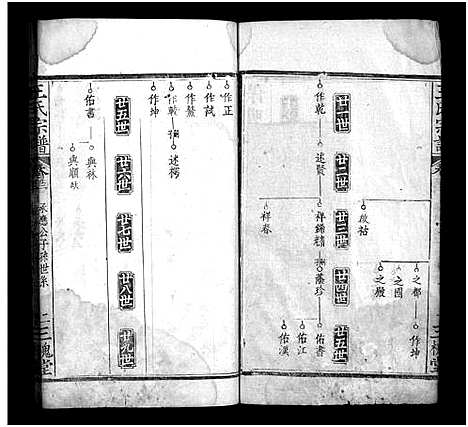 王氏宗譜
三槐堂
之都
之國
之殿
作坤
啟祜
廿一世
廿二世
廿三世
廿四世
廿五世
作乾
述賢
祥錦
蔭珍
佑書
佑江
佑漢
祥春
作正
作試
作鰲
作乾
述樗
作坤
廿五世
廿六世
廿七世
廿八世
廿九世
佑書
興林
興順
王氏宗譜
卷三
承應公子孫世系
三槐堂